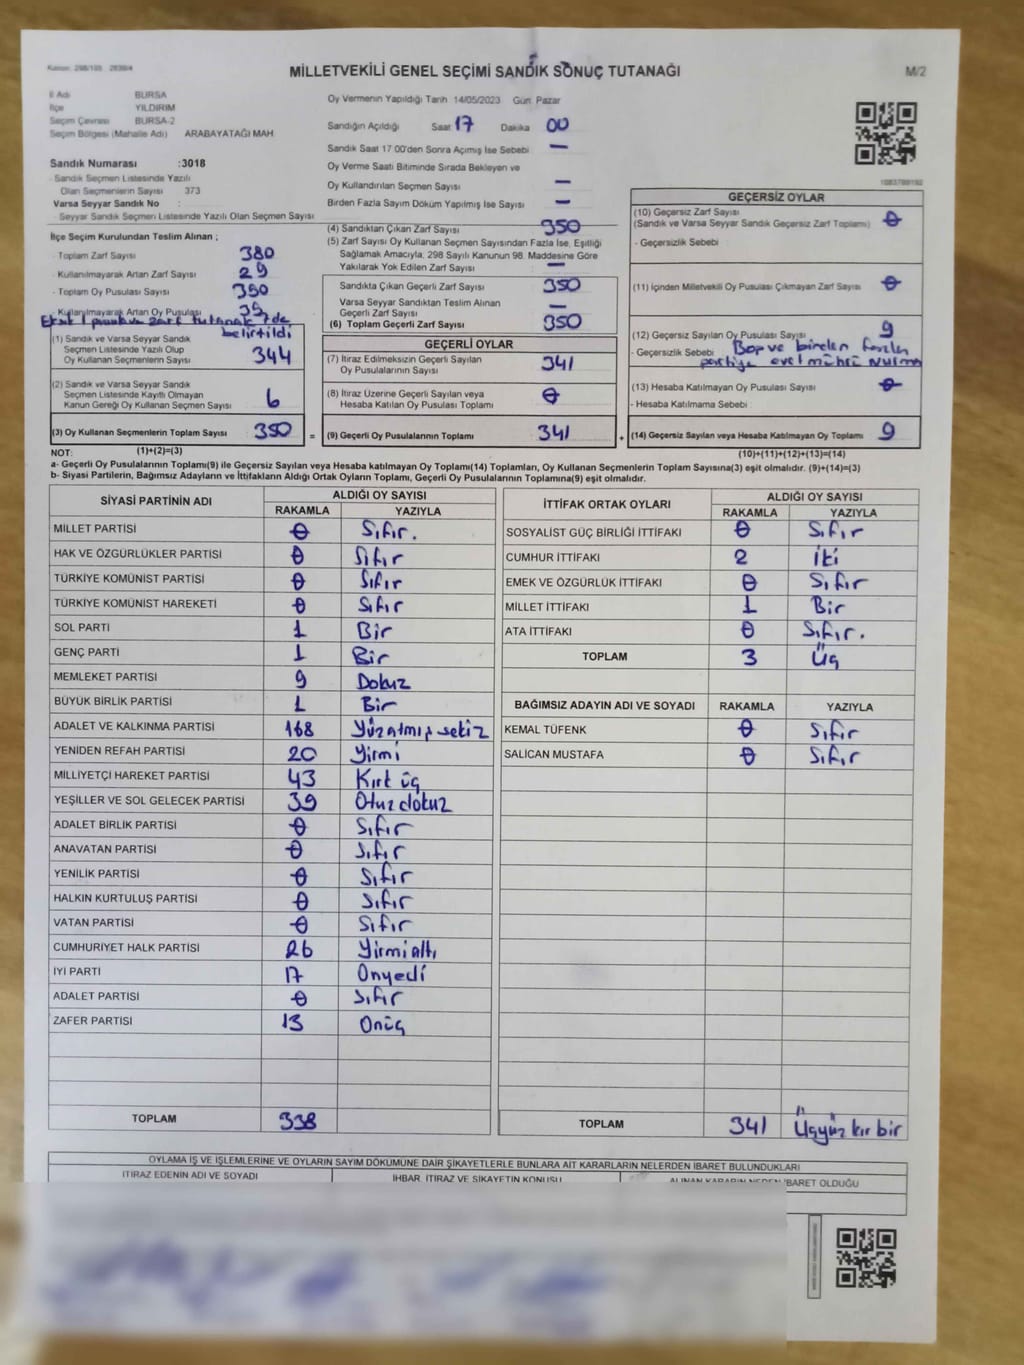 Kanun: 298/105 2839/4
MİLLETVEKİLİ GENEL SEÇİMİ SANDIK SONUÇ TUTANAĞI
M/2
İl Adı BURSA
İlçe YILDIRIM
Seçim Çevresi BURSA-2
Seçim Bölgesi (Mahalle Adı) ARABAYATAĞI MAH.
Sandık Numarası :3018
- Sandık Seçmen Listesinde Yazılı
Olan Seçmenlerin Sayısı 373
Varsa Seyyar Sandık No :
- Seyyar Sandık Seçmen Listesinde Yazılı Olan Seçmen Sayısı
Oy Vermenin Yapıldığı Tarih 14/05/2023 Gün: Pazar
Sandığın Açıldığı Saat 17 Dakika 00
Sandık Saat 17:00'den Sonra Açılmış İse Sebebi —
Oy Verme Saati Bitiminde Sırada Bekleyen ve
Oy Kullandırılan Seçmen Sayısı —
Birden Fazla Sayım Döküm Yapılmış İse Sayısı —
İlçe Seçim Kurulundan Teslim Alınan ;
- Toplam Zarf Sayısı 380
- Kullanılmayarak Artan Zarf Sayısı 29
- Toplam Oy Pusulası Sayısı 390
- Kullanılmayarak Artan Oy Pusulası 39
Eksik 1 pusula ve zarf tutanak 7 de
belirtildi
(1) Sandık ve Varsa Seyyar Sandık
Seçmen Listesinde Yazılı Olup
Oy Kullanan Seçmenlerin Sayısı 344
(2) Sandık ve Varsa Seyyar Sandık
Seçmen Listesinde Kayıtlı Olmayan
Kanun Gereği Oy Kullanan Seçmen Sayısı 6
(3) Oy Kullanan Seçmenlerin Toplam Sayısı 350
(4) Sandıktan Çıkan Zarf Sayısı 350
(5) Zarf Sayısı Oy Kullanan Seçmen Sayısından Fazla İse, Eşitliği
Sağlamak Amacıyla, 298 Sayılı Kanunun 98. Maddesine Göre
Yakılarak Yok Edilen Zarf Sayısı —
Sandıkta Çıkan Geçerli Zarf Sayısı 350
Varsa Seyyar Sandıktan Teslim Alınan
Geçerli Zarf Sayısı —
(6) Toplam Geçerli Zarf Sayısı 350
GEÇERLİ OYLAR
(7) İtiraz Edilmeksizin Geçerli Sayılan
Oy Pusulalarının Sayısı 341
(8) İtiraz Üzerine Geçerli Sayılan veya
Hesaba Katılan Oy Pusulası Toplamı 0
= (9) Geçerli Oy Pusulalarının Toplamı 341
1083789192
GEÇERSİZ OYLAR
(10) Geçersiz Zarf Sayısı 0
(Sandık ve Varsa Seyyar Sandık Geçersiz Zarf Toplamı)
- Geçersizlik Sebebi :
(11) İçinden Milletvekili Oy Pusulası Çıkmayan Zarf Sayısı 0
(12) Geçersiz Sayılan Oy Pusulası Sayısı 9
- Geçersizlik Sebebi : Boş ve birden fazla
partiye evet mührü vurma
(13) Hesaba Katılmayan Oy Pusulası Sayısı 0
- Hesaba Katılmama Sebebi :
+ (14) Geçersiz Sayılan veya Hesaba Katılmayan Oy Toplamı 9
NOT: (1)+(2)=(3) (10)+(11)+(12)+(13)=(14)
a- Geçerli Oy Pusulalarının Toplamı(9) ile Geçersiz Sayılan veya Hesaba katılmayan Oy Toplamı(14) Toplamları, Oy Kullanan Seçmenlerin Toplam Sayısına(3) eşit olmalıdır. (9)+(14)=(3)
b- Siyasi Partilerin, Bağımsız Adayların ve İttifakların Aldığı Ortak Oyların Toplamı, Geçerli Oy Pusulalarının Toplamına(9) eşit olmalıdır.
SİYASİ PARTİNİN ADI ALDIĞI OY SAYISI
RAKAMLA YAZIYLA
MİLLET PARTİSİ 0 Sıfır.
HAK VE ÖZGÜRLÜKLER PARTİSİ 0 Sıfır
TÜRKİYE KOMÜNİST PARTİSİ 0 Sıfır
TÜRKİYE KOMÜNİST HAREKETİ 0 Sıfır
SOL PARTİ 1 Bir
GENÇ PARTİ 1 Bir
MEMLEKET PARTİSİ 9 Dokuz
BÜYÜK BİRLİK PARTİSİ 1 Bir
ADALET VE KALKINMA PARTİSİ 168 Yüzatmış sekiz
YENİDEN REFAH PARTİSİ 20 Yirmi
MİLLİYETÇİ HAREKET PARTİSİ 43 Kırk üç
YEŞİLLER VE SOL GELECEK PARTİSİ 39 Otuz dokuz
ADALET BİRLİK PARTİSİ 0 Sıfır
ANAVATAN PARTİSİ 0 Sıfır
YENİLİK PARTİSİ 0 Sıfır
HALKIN KURTULUŞ PARTİSİ 0 Sıfır
VATAN PARTİSİ 0 Sıfır
CUMHURİYET HALK PARTİSİ 26 Yirmi altı
İYİ PARTİ 17 Onyedi
ADALET PARTİSİ 0 Sıfır
ZAFER PARTİSİ 13 Onüç
TOPLAM 338
İTTİFAK ORTAK OYLARI ALDIĞI OY SAYISI
RAKAMLA YAZIYLA
SOSYALİST GÜÇ BİRLİĞİ İTTİFAKI 0 Sıfır
CUMHUR İTTİFAKI 2 İki
EMEK VE ÖZGÜRLÜK İTTİFAKI 0 Sıfır
MİLLET İTTİFAKI 1 Bir
ATA İTTİFAKI 0 Sıfır.
TOPLAM 3 Üç
BAĞIMSIZ ADAYIN ADI VE SOYADI RAKAMLA YAZIYLA
KEMAL TÜFENK 0 Sıfır
SALİCAN MUSTAFA 0 Sıfır
TOPLAM 341 Üçyüz kır bir
OYLAMA İŞ VE İŞLEMLERİNE VE OYLARIN SAYIM DÖKÜMÜNE DAİR ŞİKAYETLERLE BUNLARA AİT KARARLARIN NELERDEN İBARET BULUNDUKLARI
İTİRAZ EDENİN ADI VE SOYADI İHBAR, İTİRAZ VE ŞİKAYETİN KONUSU ALINAN KARARIN NEDEN İBARET OLDUĞU